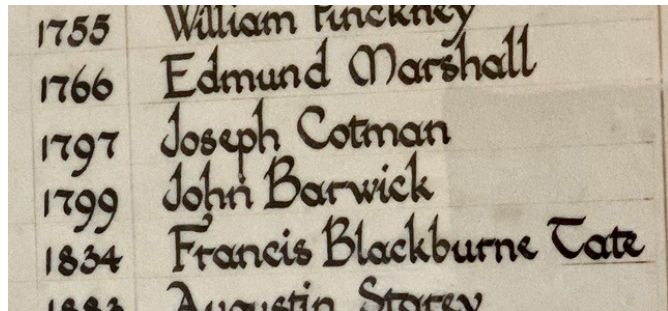 1755 William Pinckney
1766 Edmund Marshall
1797 Joseph Cotman
1799 John Barwick
1834 Francis Blackburne Tate
1883 Augustin Storey